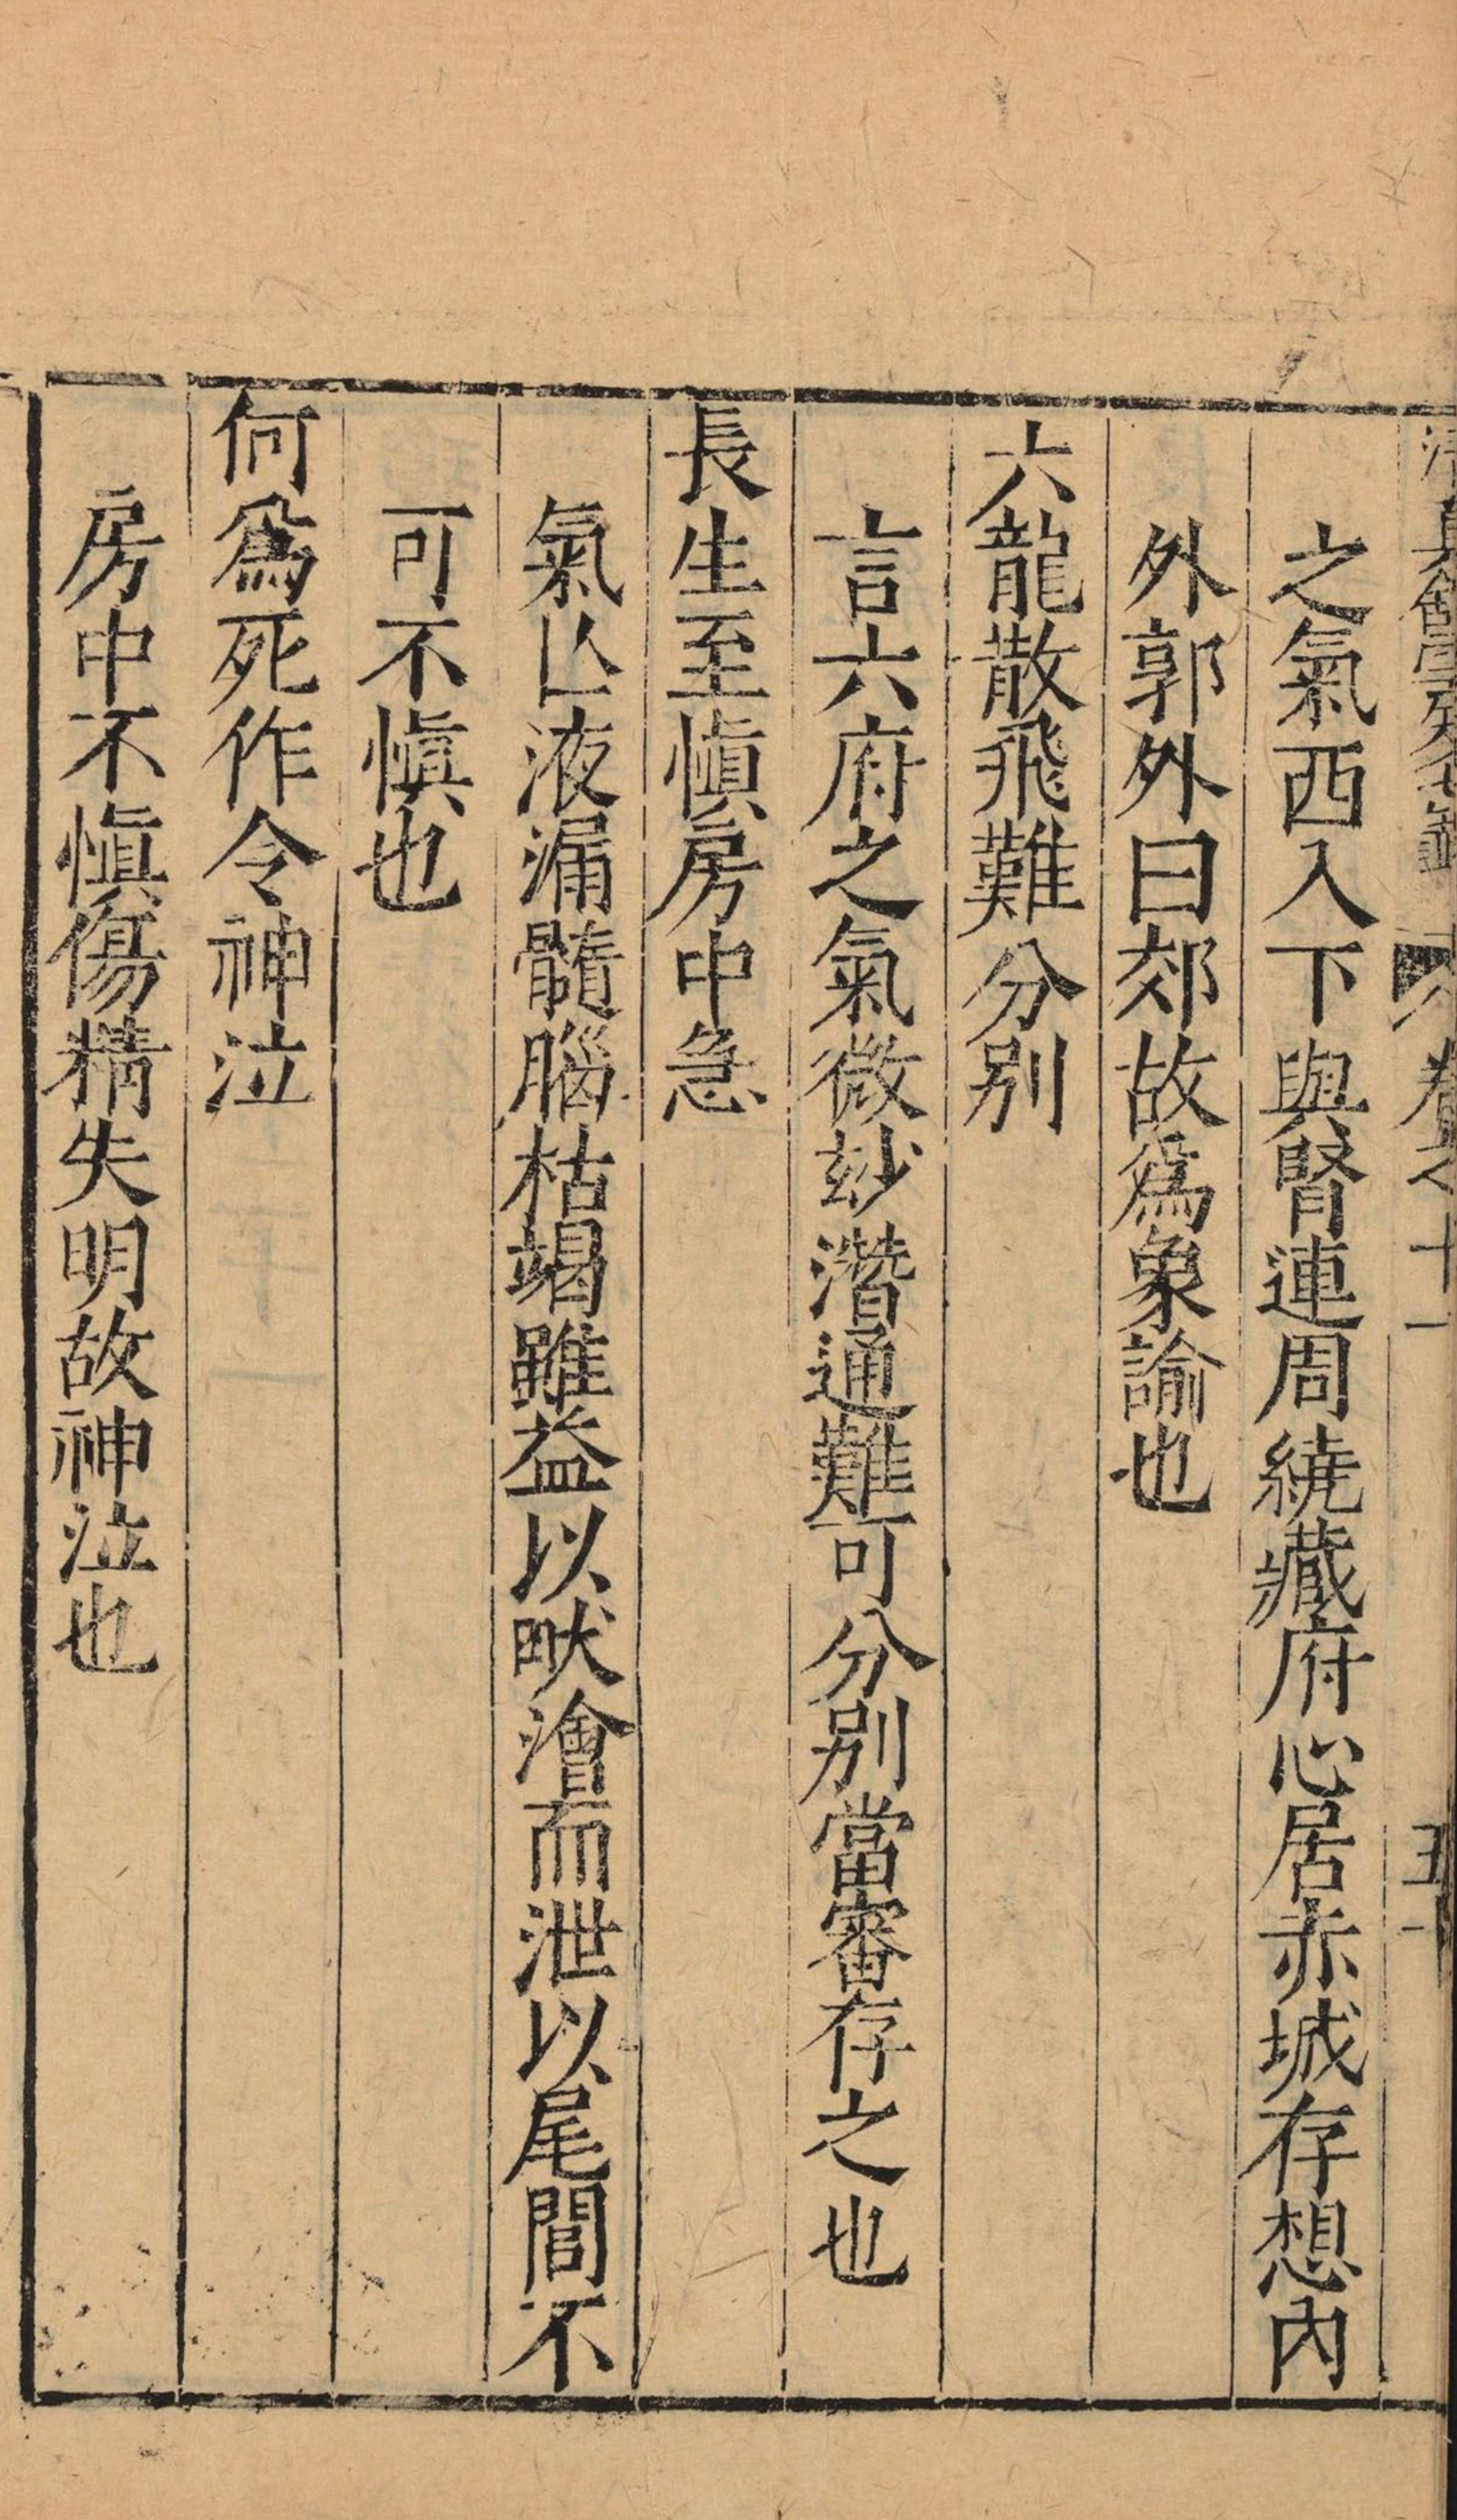 卷之十一
之氣西入下與腎連周繞藏府心居赤城存想內
外郭外曰郊故爲象諭也
六龍散飛難分別
言六府之氣微玅潛通難可分別當審存之也
長生至愼房中急
氣亾液漏髓腦枯竭雖益以畎澮而泄以尾閭不
可不愼也
何爲死作令神泣
房中不愼傷精失明故神泣也